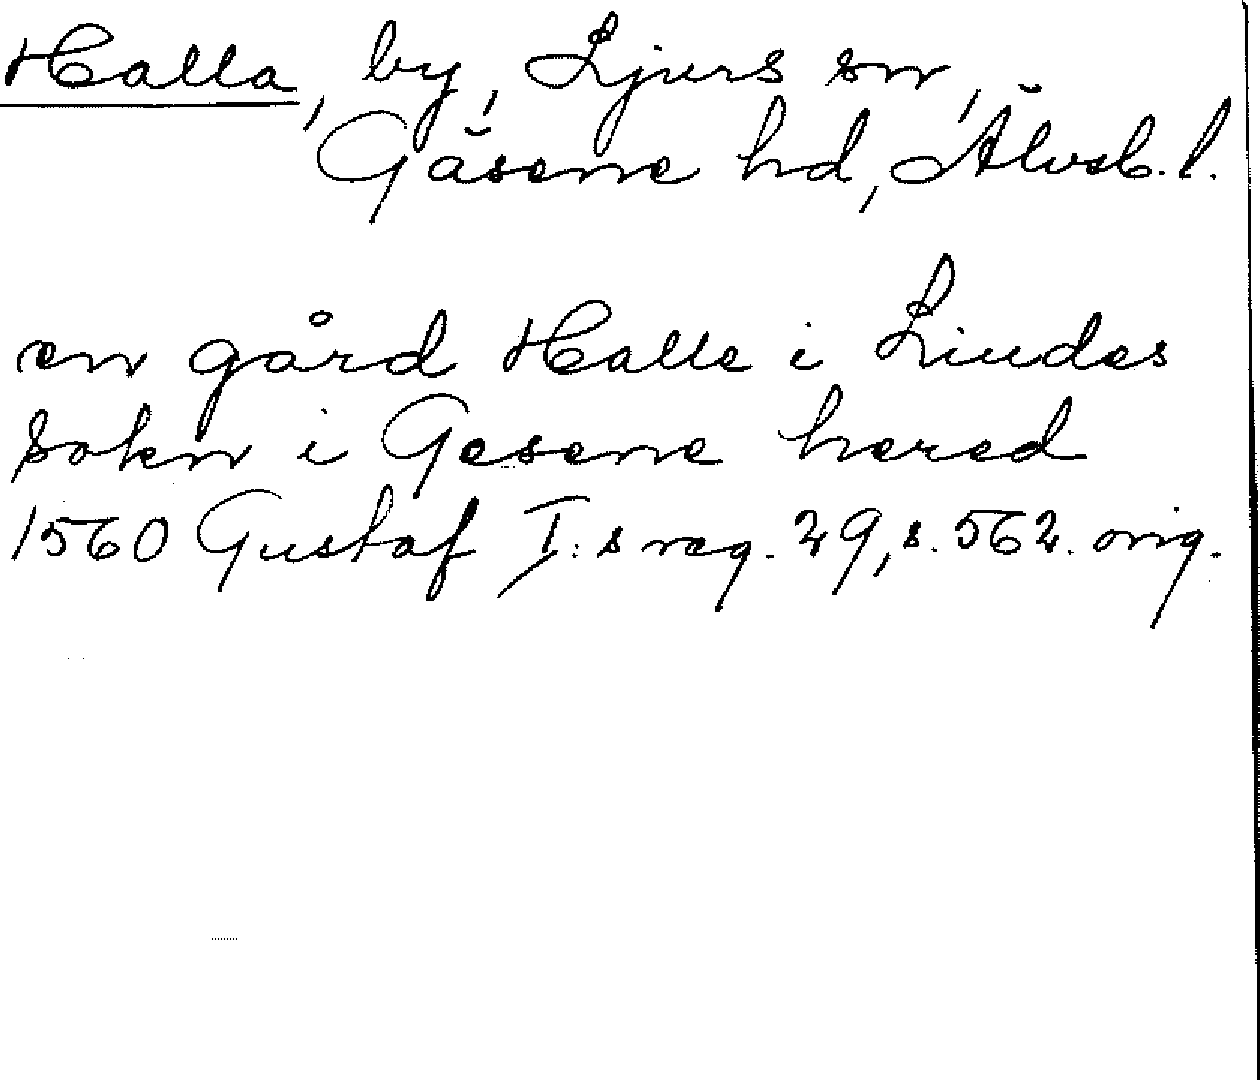 Halla, by, Ljurs sn,
Gäsene hd, Älvsb. l.
en gård Halle i Liudes
sokn i Gesene hered
1560 Gustaf I:s reg. 29, s. 562. orig.